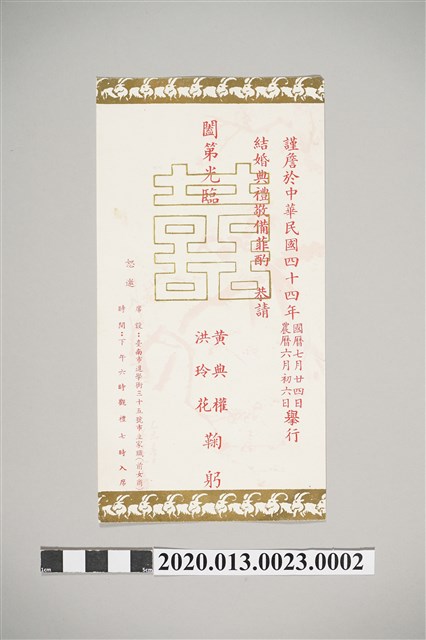 謹詹於中華民國四十四年國曆七月廿四日農曆六月初六日舉行
結婚典禮敬備菲酌 恭請
闔第光臨
囍
黃典權
洪玲花 鞠躬
恕邀
席設：臺南市進學街三十五號市立家職(前女商)
時間：下午六時觀禮七時入席
1cm 5cm
2020.013.0023.0002